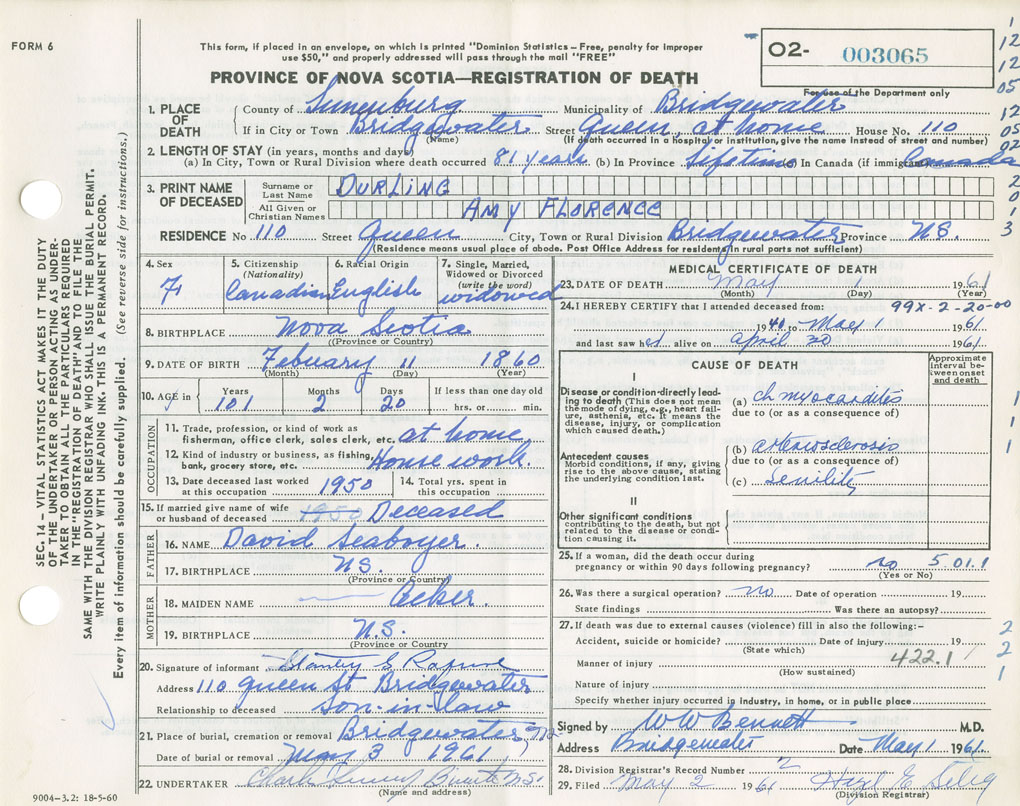 FORM 6
This form, if placed in an envelope, on which is printed "Dominion Statistics—Free, penalty for improper
use $50," and properly addressed will pass through the mail "FREE"
PROVINCE OF NOVA SCOTIA—REGISTRATION OF DEATH
O2- 003065
For use of the Department only
1. PLACE OF DEATH County of Lunenburg Municipality of Bridgewater
If in City or Town Bridgewater Street Queen, at home House No. 110
(Name) (If death occurred in a hospital or institution, give the name instead of street and number)
2. LENGTH OF STAY (in years, months and days)
(a) In City, Town or Rural Division where death occurred 81 years (b) In Province Lifetime (c) In Canada (if immigrant) Canada
3. PRINT NAME OF DECEASED Surname or Last Name DURLING
All Given or Christian Names AMY FLORENCE
RESIDENCE No 110 Street Queen City, Town or Rural Division Bridgewater Province N.S.
(Residence means usual place of abode. Post Office Address for residents in rural parts not sufficient)
4. Sex F
5. Citizenship (Nationality) Canadian
6. Racial Origin English
7. Single, Married, Widowed or Divorced (write the word) widowed
8. BIRTHPLACE Nova Scotia
(Province or Country)
9. DATE OF BIRTH Febuary 11 1860
(Month) (Day) (Year)
10. AGE in Years 101 Months 2 Days 20 If less than one day old
hrs. or min.
OCCUPATION
11. Trade, profession, or kind of work as
fisherman, office clerk, sales clerk, etc. at home
12. Kind of industry or business, as fishing,
bank, grocery store, etc. House work.
13. Date deceased last worked
at this occupation 1950
14. Total yrs. spent in
this occupation
15. If married give name of wife
or husband of deceased 1950 Deceased
FATHER
16. NAME David Seaboyer.
17. BIRTHPLACE N.S.
(Province or Country)
MOTHER
18. MAIDEN NAME Acker.
19. BIRTHPLACE N.S.
(Province or Country
20. Signature of informant Stanley
Address 110 Queen St Bridgewater
Relationship to deceased Son-in-law
21. Place of burial, cremation or removal Bridgewater,
Date of burial or removal May 3 1961
22. UNDERTAKER
(Name and address)
9004-3.2: 18-5-60
MEDICAL CERTIFICATE OF DEATH
23. DATE OF DEATH May 1 1961
(Month) (Day) (Year)
24. I HEREBY CERTIFY that I attended deceased from: 99X-2-20-00
19 40 to May 1 1961
and last saw her alive on April 30 1961
CAUSE OF DEATH
Approximate Interval between onset and death
I
Disease or condition directly leading to death (This does not mean the mode of dying, e.g., heart failure, asthenia, etc. It means the disease, injury, or complication which caused death.)
(a) ch myocarditis
due to (or as a consequence of)
Antecedent causes
Morbid conditions, if any, giving rise to the above cause, stating the underlying condition last.
(b) arteriosclerosis
due to (or as a consequence of)
(c) Senility
II
Other significant conditions
contributing to the death, but not related to the disease or condition causing it.
25. If a woman, did the death occur during
pregnancy or within 90 days following pregnancy? no 5.01.1
(Yes or No)
26. Was there a surgical operation? no Date of operation 19
State findings Was there an autopsy?
27. If death was due to external causes (violence) fill in also the following:-
Accident, suicide or homicide? Date of injury 19
(State which) 422.1
Manner of injury
(How sustained)
Nature of injury
Specify whether injury occurred in industry, in home, or in public place
Signed by W W Bennett M.D.
Address Bridgewater Date May 1 1961.
28. Division Registrar's Record Number 2
29. Filed May 2 1961
(Division Registrar)
1
12
12
05
12
05
02
2
0
1
3
1
1
1
2
2
1
SEC. 14 – VITAL STATISTICS ACT MAKES IT THE DUTY
OF THE UNDERTAKER OR PERSON ACTING AS UNDER-
TAKER TO OBTAIN ALL THE PARTICULARS REQUIRED
IN THE "REGISTRATION OF DEATH" AND TO FILE THE
SAME WITH THE DIVISION REGISTRAR WHO SHALL ISSUE THE BURIAL PERMIT.
WRITE PLAINLY WITH UNFADING INK. THIS IS A PERMANENT RECORD.
Every item of information should be carefully supplied. (See reverse side for instructions.)